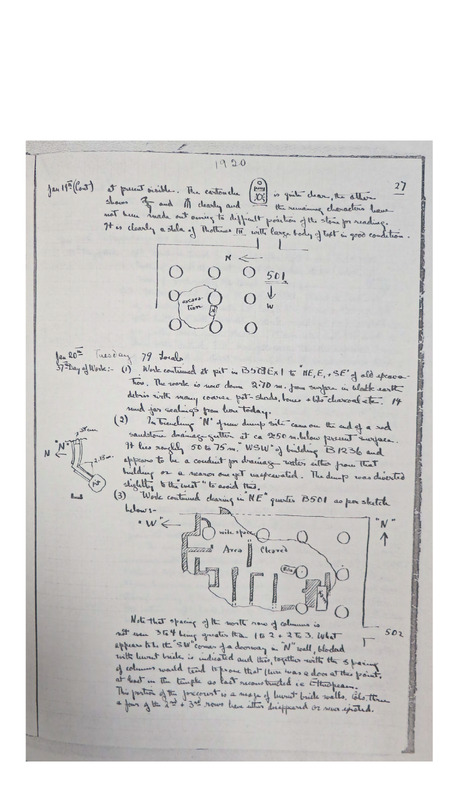 1920
27
Jan 19th (Cont) at present visible. The cartouche is quite clear, the other
shows and clearly and the remaining characters have
not been made out owing to difficult position of the stone for reading.
It is clearly a stela of Thothmes III. with large body of text in good condition.
N
501
W
excava-
tion
Jan 20th Tuesday 79 Locals
37th Day of Work:- (1) Work continued at pit in B501 Ex 1 to "NE, E, + SE" of old excava-
tion. The work is now down 2.70 m. from surface in black earth
debris with many coarse pot-sherds, bones & bits charcoal etc. 14
mud jar sealings from here today.
(2) In trenching "N" from dump site came on the end of a red
sandstone drainage gutter at ca 250 m. below present surface.
It lies roughly 50 to 75 m. "WSW" of building B 1236 and
appears to be a conduit for drainage water either from that
building or a nearer one yet unexcavated. The dump was diverted
slightly to the west to avoid this.
N "N"
(3) Work continued clearing in "NE" quarter B501 as per sketch
below:-
"W"
"N"
wide space
Area Cleared
502
Note that spacing of the north row of columns is
not even 3 to 4 being greater than 1 to 2 + 2 to 3. What
appears to be the "SW" corner of a doorway in "N" wall, blocked
with burnt brick is indicated and this, together with the spacing
of columns would tend to prove that there was a door at this point,
at least in the temple as last reconstructed i.e. Ethiopian.
This portion of the forecourt is a maze of burnt brick walls. Cols. three
& four of the 2nd + 3rd rows have either disappeared or never existed.